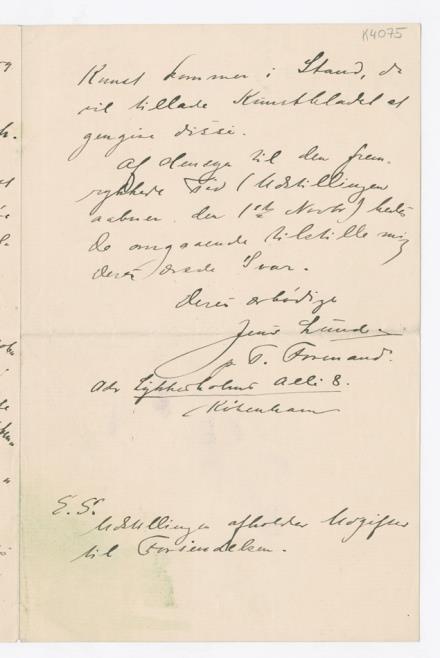 K4075
Kunst kommer i Stand, da
vil tillade Kunstbladet at
gengive disse.
Af Hensyn til den frem-
rykkede Tid (Udstillingen
aabner den 1ste Novbr) bedes
De omgaaende tilstille mig
Deres ærede Svar.
Deres ærbødige
Jens Lund
p. T. Formand.
Adr Lykkesholms Allé 8.
København
E. S.
Udstillingen afholder Udgifter
til Forsendelsen.